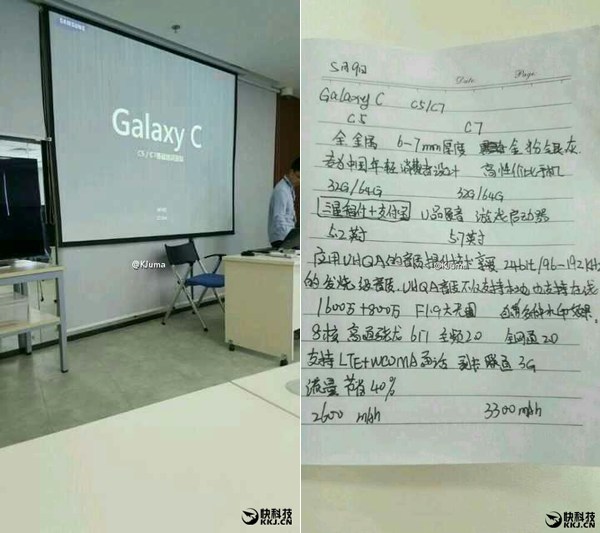 SAMSUNG
Galaxy C
C5 / C7
@KJuma
快科技
KKJ.CN
5月9日
Date Page
Galaxy C C5/C7
C5 C7
全金属 6-7mm厚度 金 粉 银 灰
为中国年轻消费者设计 高性价比手机
32G/64G 32G/64G
三星智付+支付宝 U品服务 游戏启动器
5.2英寸 5.7英寸
应用UHQA的音质提升技术 24bit/96-192KHz
@KJuma
的发烧级音质. UHQA音质不仅支持本地也支持在线
1600万+800万 F1.9大光圈
8核 高通骁龙 617 主频2.0 全网通2.0
支持LTE+WCDMA通话 副卡联通3G
流量节省40%
2600 mAh 3300 mAh
快科技
KKJ.CN